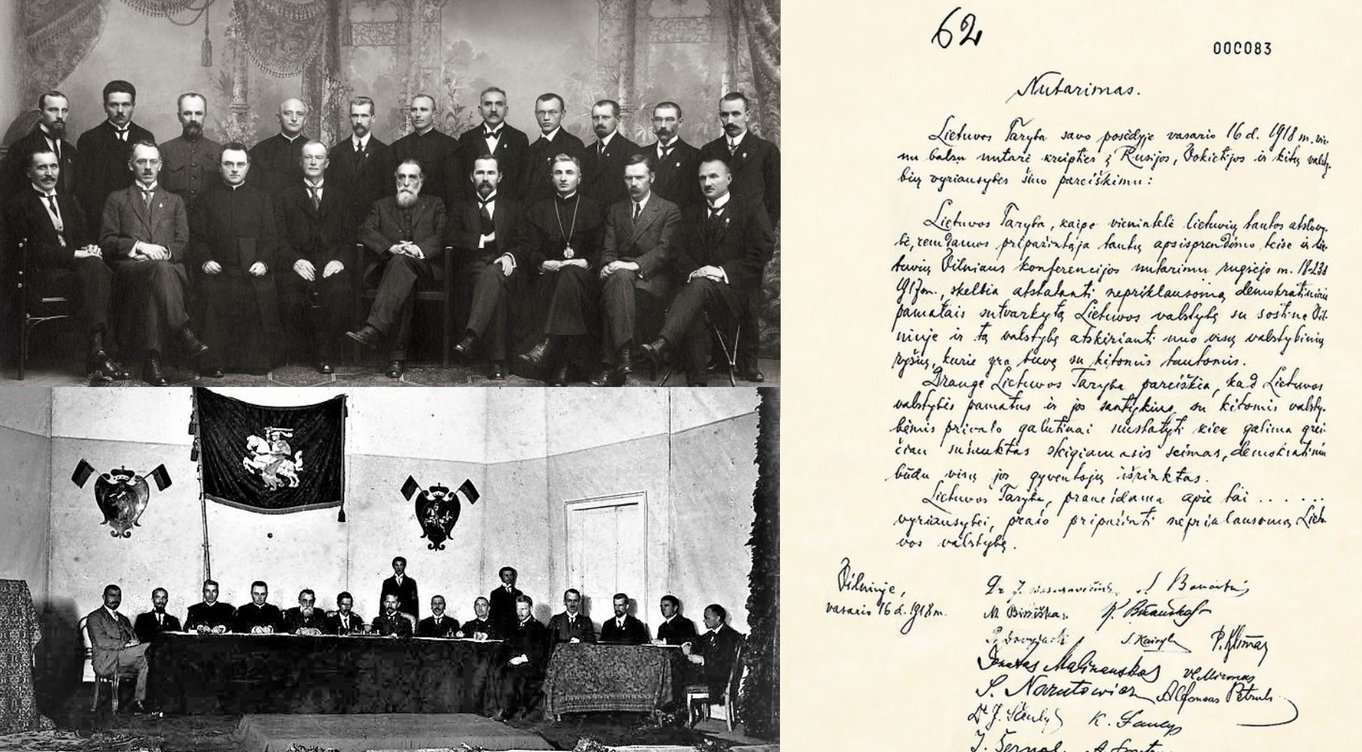 62
000083
Nutarimas.
Lietuvos Taryba savo posėdyje vasario 16 d. 1918 m. vie-
nu balsu nutarė kreipties į Rusijos, Vokietijos ir kitų valsty-
bių vyriausybes šiuo pareiškimu:
Lietuvos Taryba, kaipo vienintelė lietuvių tautos atstovy-
bė, remdamos pripažintąja tautų apsisprendimo teise ir lie-
tuvių Vilniaus konferencijos nutarimu rugsėjo m. 18-23 d
1917 m., skelbia atstatanti nepriklausomą demokratiniais
pamatais sutvarkytą Lietuvos valstybę su sostine Vil-
niuje ir tą valstybę atskirianti nuo visų valstybinių
ryšių, kurie yra buvę su kitomis tautomis.
Drauge Lietuvos Taryba pareiškia, kad Lietuvos
valstybės pamatus ir jos santykius su kitomis valsty-
bėmis privalo galutinai nustatyti kiek galima grei-
čiau sušauktas steigiamasis seimas, demokratiniu
būdu visų jos gyventojų išrinktas.
Lietuvos Taryba, pranešdama apie tai . . . . . .
vyriausybei, prašo pripažinti nepriklausomą Lietu-
vos valstybę.
Vilniuje,
vasario 16 d. 1918 m.
Dr. J. Basanavičius S. Banaitis
M. Biržiška K. Bizauskas
P. Dovydaitis S. Kairys P. Klimas
Donatas Malinauskas Vl. Mironas
S. Narutowicz Alfonsas Petrulis
Dr J. Šaulys K. Šaulys
J. Šernas A. Smetona